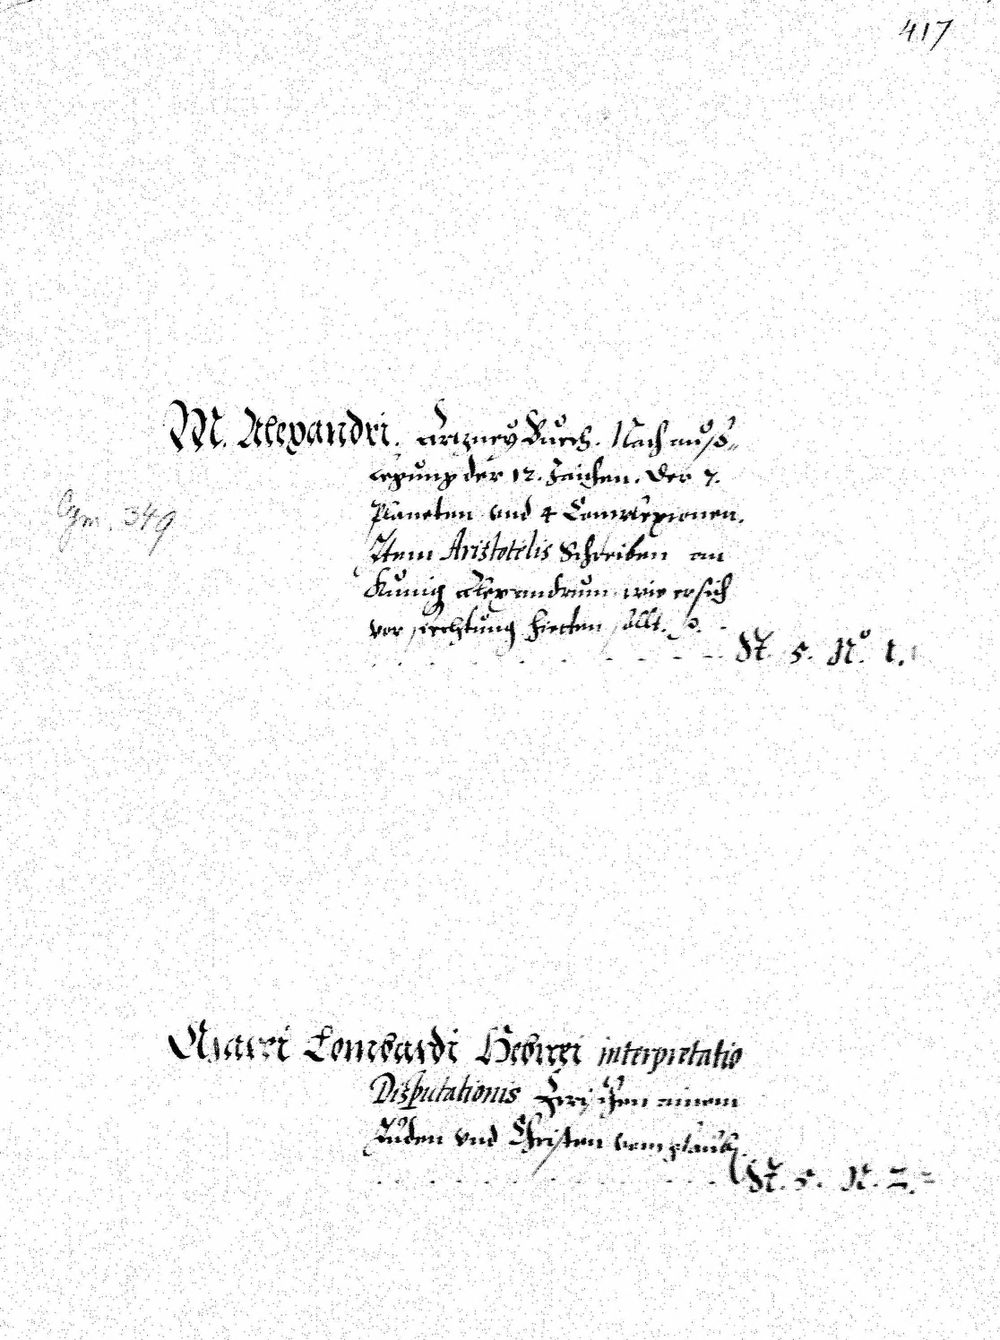 417
M. Alexandri. Artzneÿ Buech. Nach auß„
legung der 12. Zaichen. der 7.
Planeten und 4 Complexionen.
Cgm. 349
Item Aristotelis Schreiben an
Künig Alexandrum wie er sich
vor hietten sollt.
St. 5. No. 1.
Marci Lombardi Hebræi interpretatio
Disputationis Zwischen ainem
Juden vnd Christen vom glaub.
St. 5. N. 2.